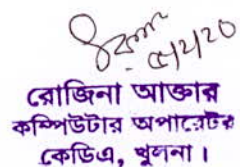 রোজিনা আক্তার
কম্পিউটার অপারেটর
কেডিএ, খুলনা।